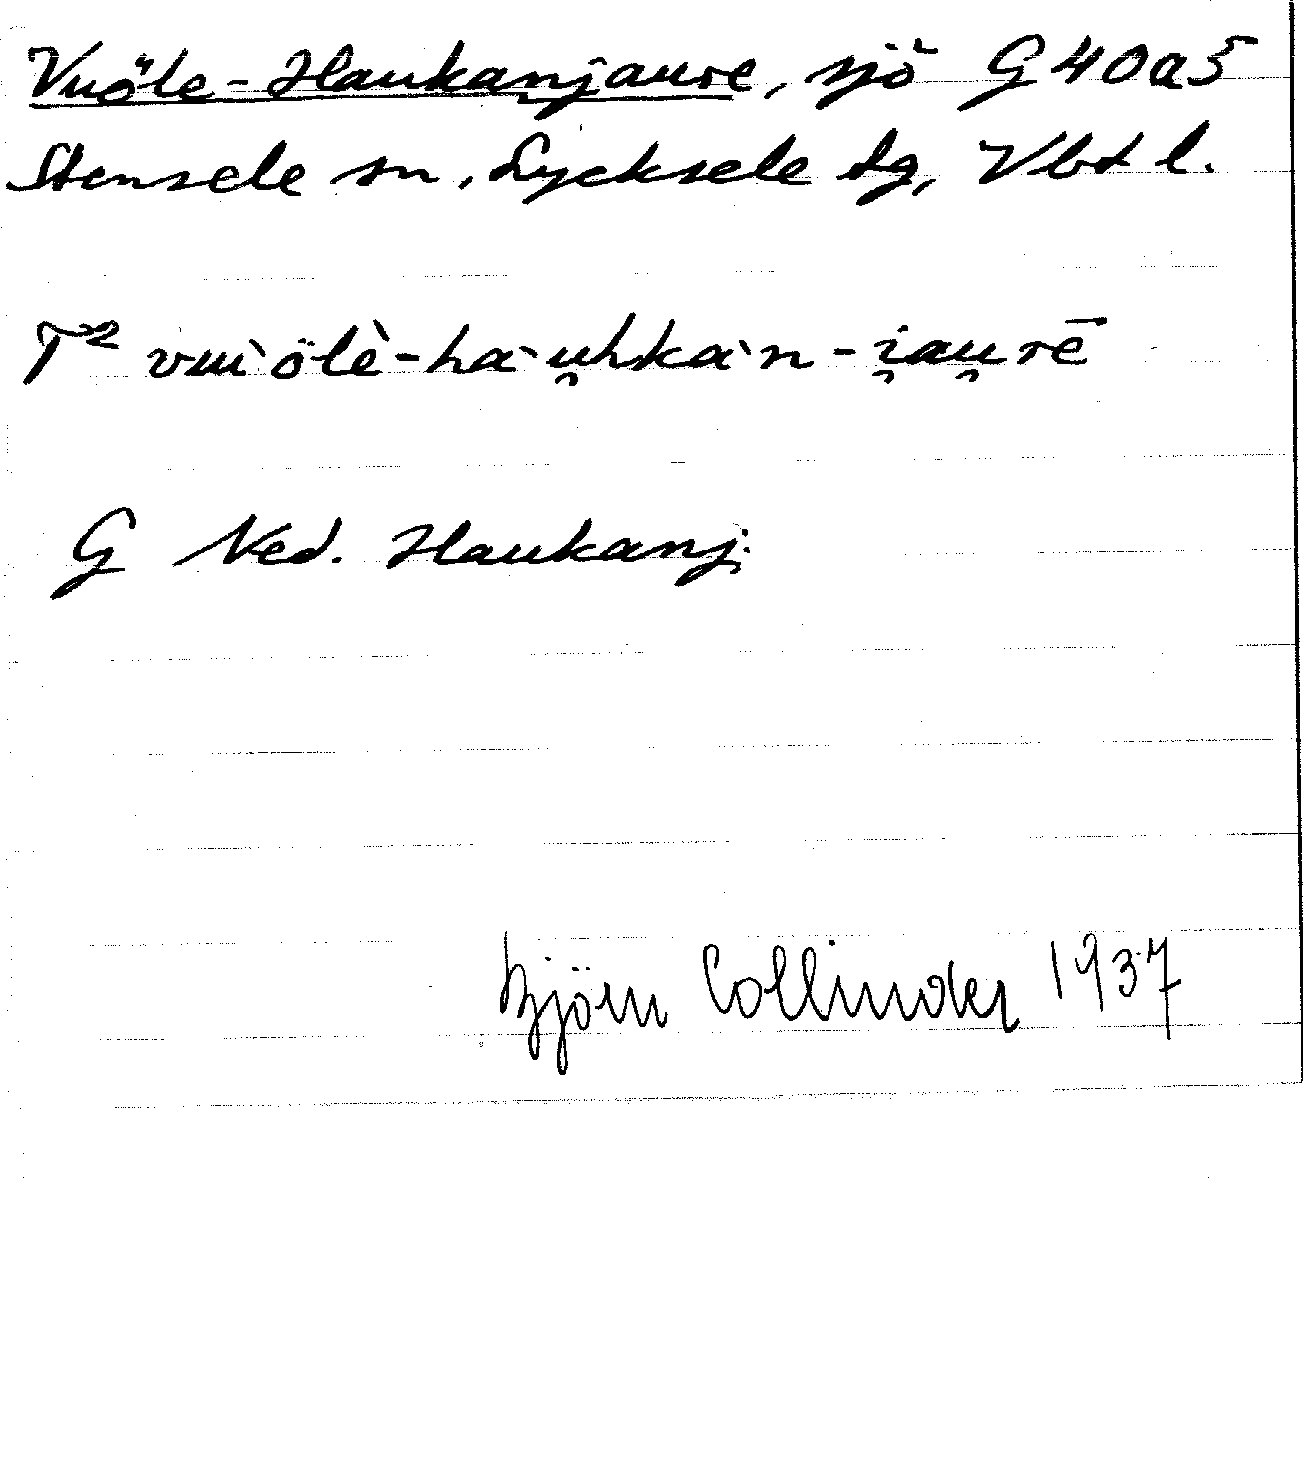 Vuöle-Haukanjaure, sjö G 40a5
Stensele sn, Lycksele lg, Vbt l.
T² vuìölè-hàu̯hkàn-i̯au̯rē
G Ned. Haukanj.
Björn Collinder 1937